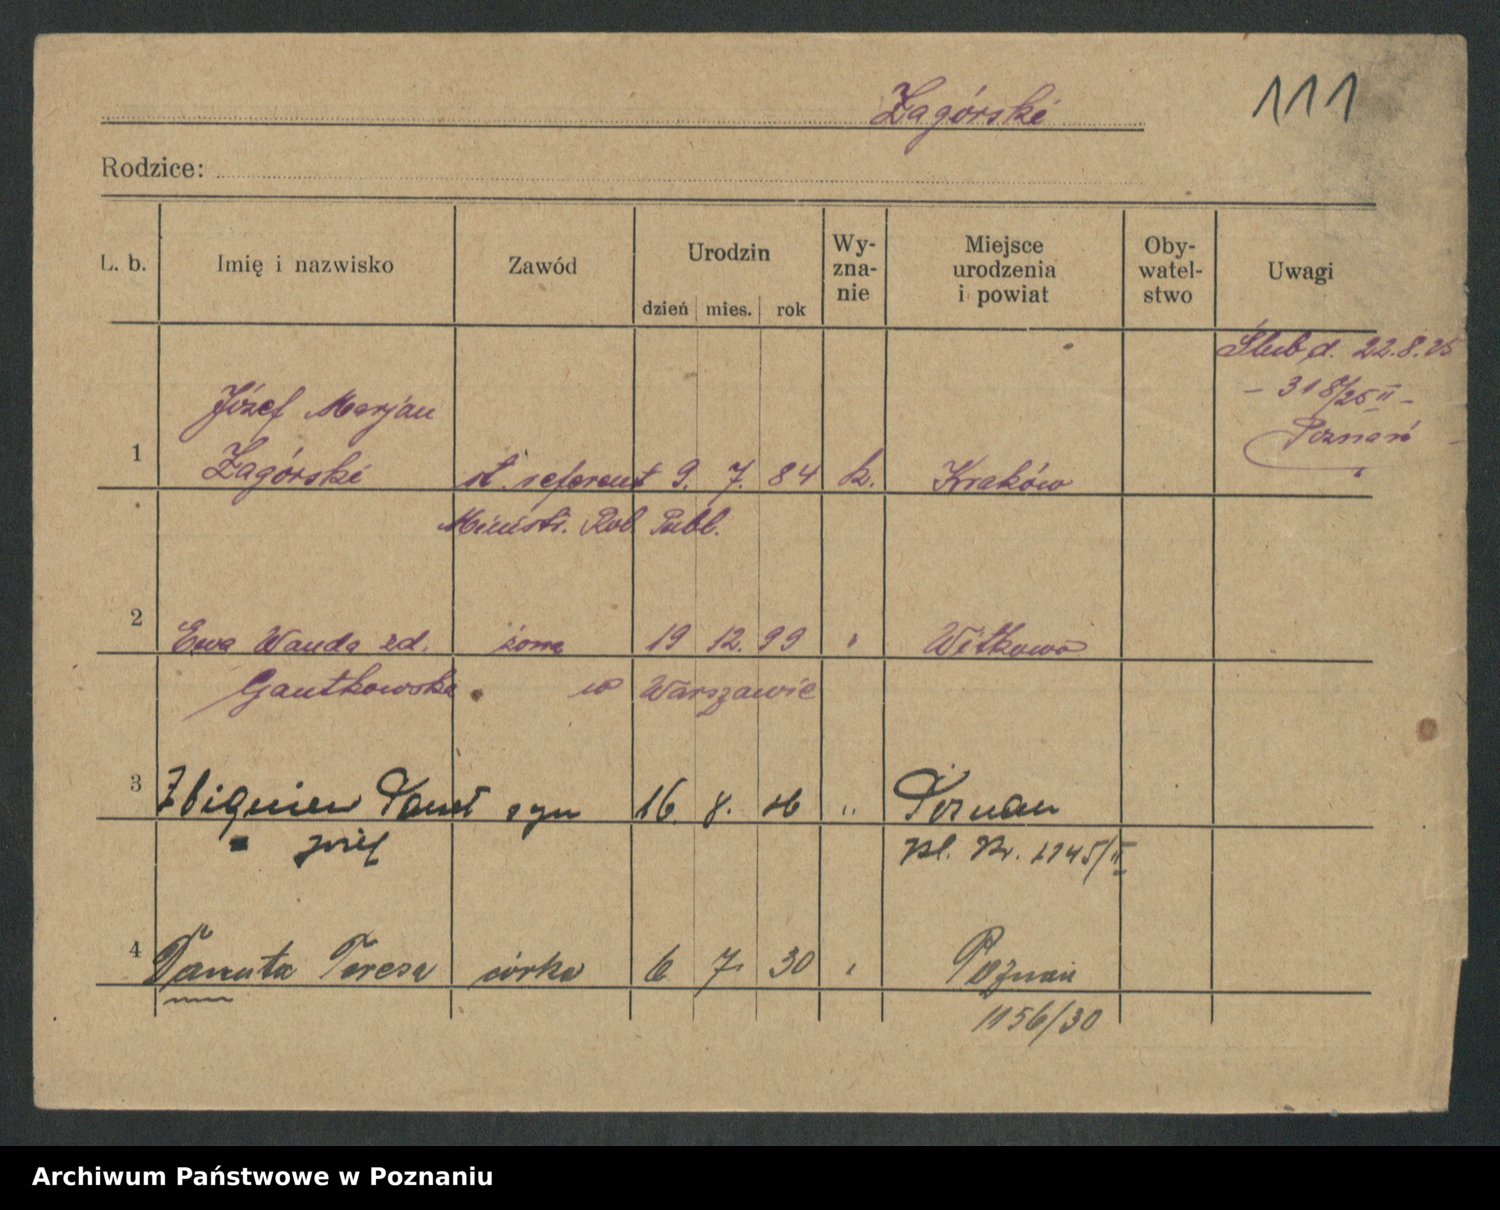 Zagórski
111
Rodzice:
L. b. Imię i nazwisko Zawód Urodzin Wy-zna-nie Miejsce urodzenia i powiat Oby-watel-stwo Uwagi
dzień mies. rok
Ślub d. 22.8.25
- 318/25 II -
Poznań
Józef Marjan
1 Zagórski st. referent 9. 7. 84 k. Kraków
Ministr. Rob. Publ.
2 Ewa Wanda zd. żona 19 12. 99 " Witkowo
Gantkowska w Warszawie
3 Zbigniew syn 16. 8. 26 " Poznań
Józef Kl. Nr. 1145/II
4 Danuta Teresa córka 6 7. 30 " Poznań
1156/30
Archiwum Państwowe w Poznaniu